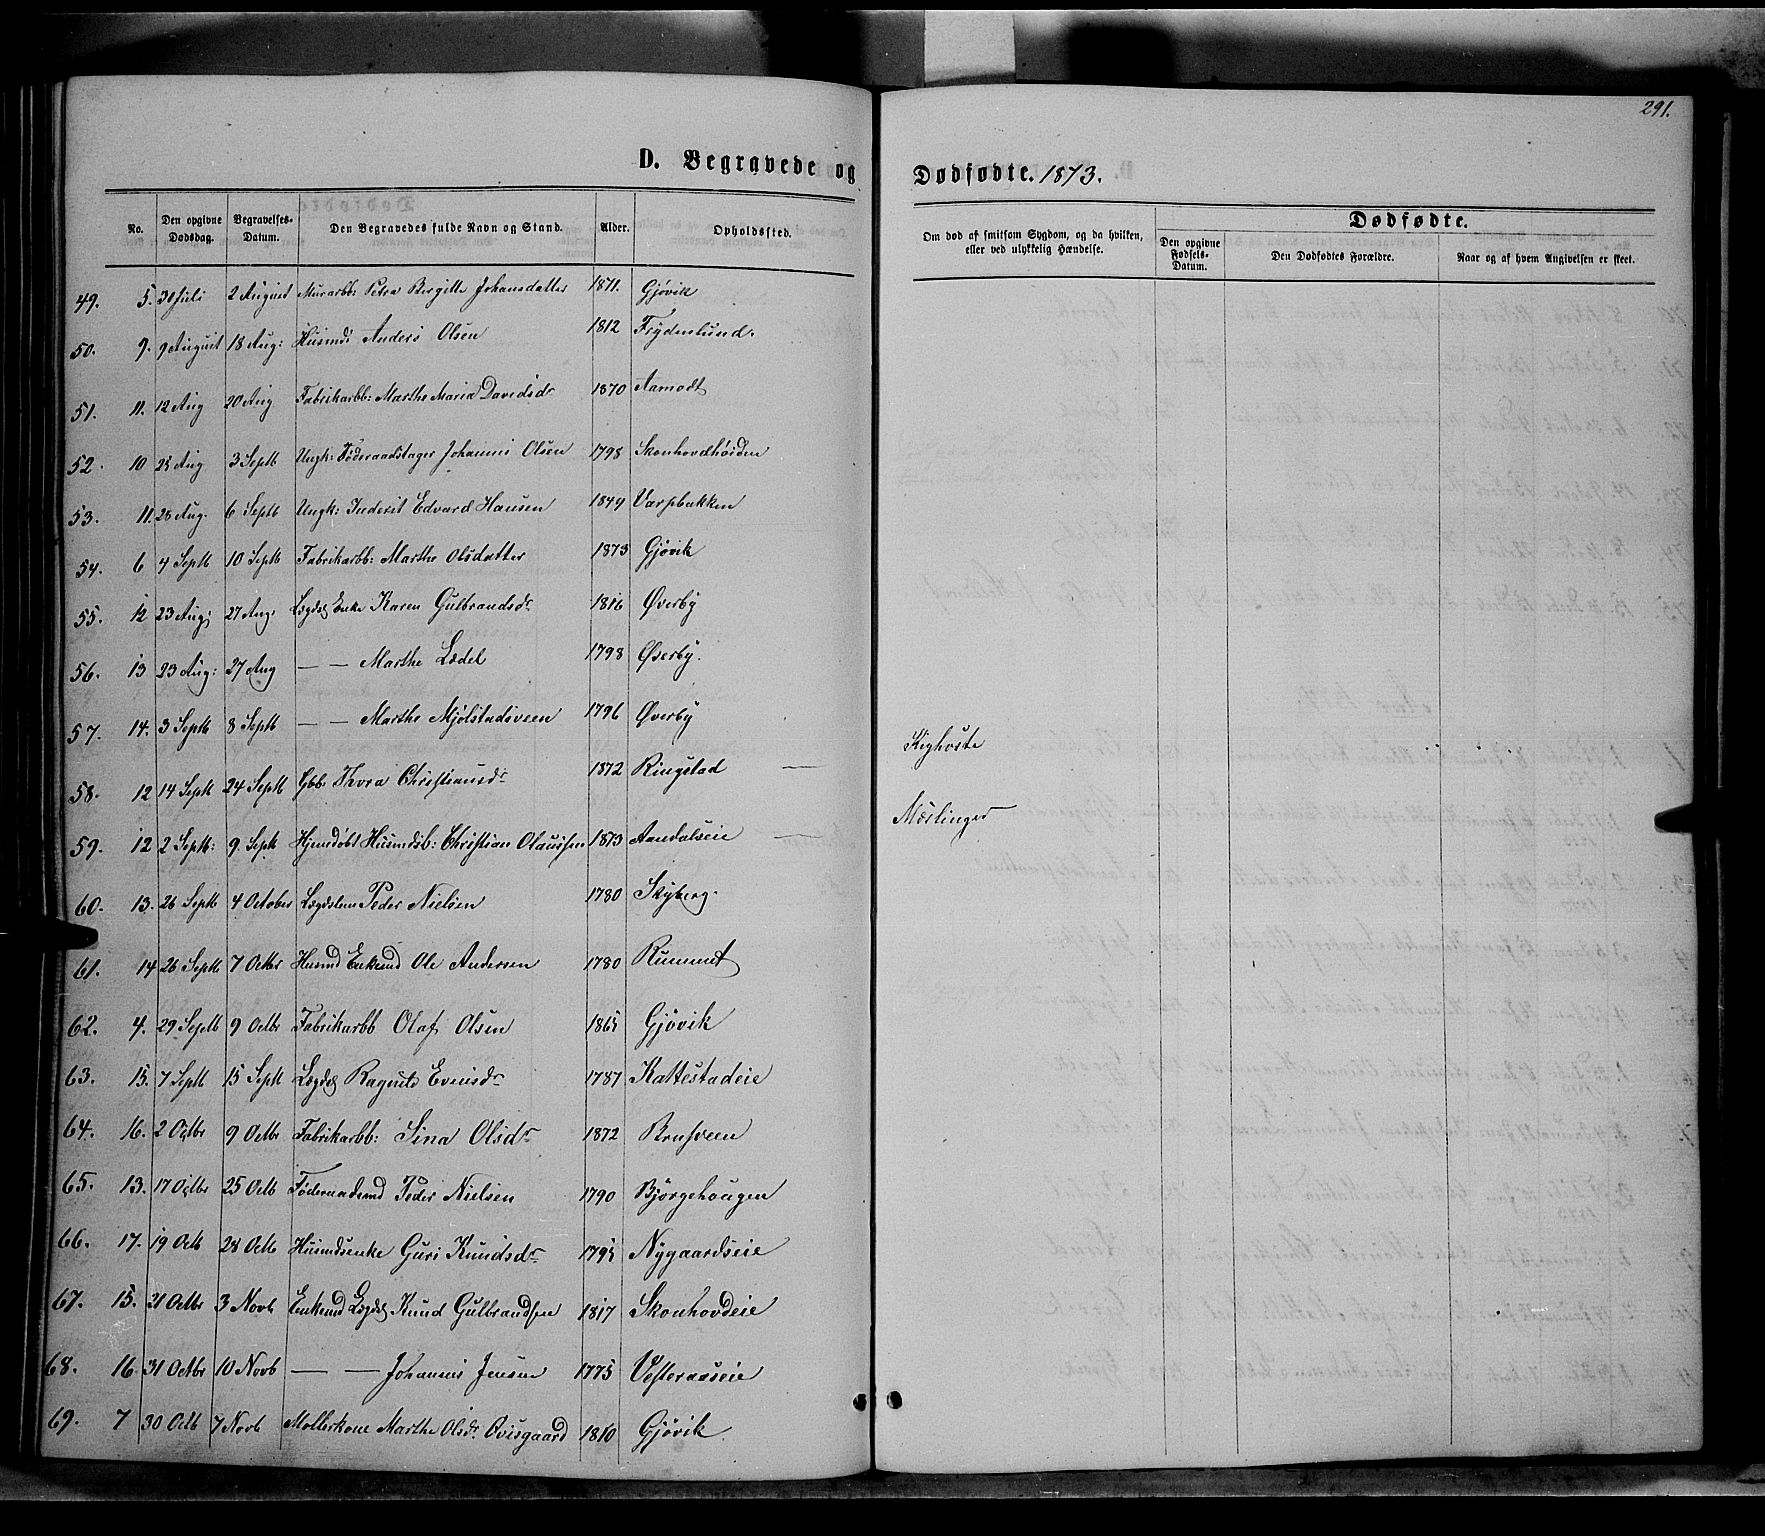 291.
D. Begravede og Dødfødte. 1873.
No. Den opgivne Dødsdag. Begravelses-Datum. Den Begravedes fulde Navn og Stand. Alder. Opholdssted. Om død af smitsom Sygdom, og da hvilken, eller ved ulykkelig Hændelse. Dødfødte. Den opgivne Fødsels-Datum. Den Dødfødtes Forældre. Naar og af hvem Angivelsen er skeet.
49. 5. 30 Juli 2 August Murarbb: Petra Birgitte Johansdatter 1871. Gjøvik
50. 9. 9 August 18 Aug: Husmd: Anders Olsen 1812 Frydenlund.
51. 11. 12 Aug 20 Aug Fabrikarbb: Marthe Maria Davidsdr 1870 Aamodt
52. 10 25 Aug 3 Septb Ungk: Føderaadstager Johannes Olsen 1798 Skonhovdhøiden
53. 11. 28 Aug. 6 Septb Ungk: Inderst Edvard Hansen 1849 Varpbakken
54. 6 4 Septb 10 Septb Fabrikarbb: Marthe Olsdatter 1873 Gjøvik
55. 12 23 Aug: 27 Aug: Lægdsl Enke Karen Gulbrandsdr 1816 Øverby
56. 13 23 Aug: 27 Aug — — Marthe Lædel 1798 Øverby.
57. 14. 3 Septb 8 Septb — — Marthe Mjølstadsveen 1796 Øverby
58. 12 14 Septb 24 Septb Gbb: Thora Christiansdr 1872 Ringstad — Kighoste
59. 12 2 Septb: 9 Septb Hjemdøbt Husmdsb: Christian Olaussen 1873 Aandalseie — Mæslinger
60. 13. 26 Septb 4 October Lægdslem Peder Nielsen 1780 Skyberg.
61. 14 26 Septb 7 Octbr Husmd Enkemd Ole Andersen 1780 Rummet
62. 4. 29 Septb 9 Octbr Fabrikarbb Olaf Olsen 1865 Gjøvik
63. 15. 7 Septb 15 Septb Lægdsl Ragnild Evensdr 1787 Kattestadeie
64. 16. 2 Octbr 9 Octbr Fabrikarbb: Sina Olsdr 1872 Brusveen
65. 13. 17 Octbr 25 Octb Føderaadsmd Peder Nielsen 1790 Bjørgehaugen
66. 17. 19 Octb 28 Octb Husmdsenke Guri Knudsdr 1795 Nygaardseie
67. 15. 21 Octbr 3 Novb Enkemd Lægdsl Knud Gulbrandsen 1817 Skonhovdeie
68. 16. 31 Octbr 10 Novb — — Johannes Jensen 1775 Vesteraaseie
69. 7 30 Octb 7 Novb Møllerkone Marthe Olsdr. Ovisgaard 1810 Gjøvik